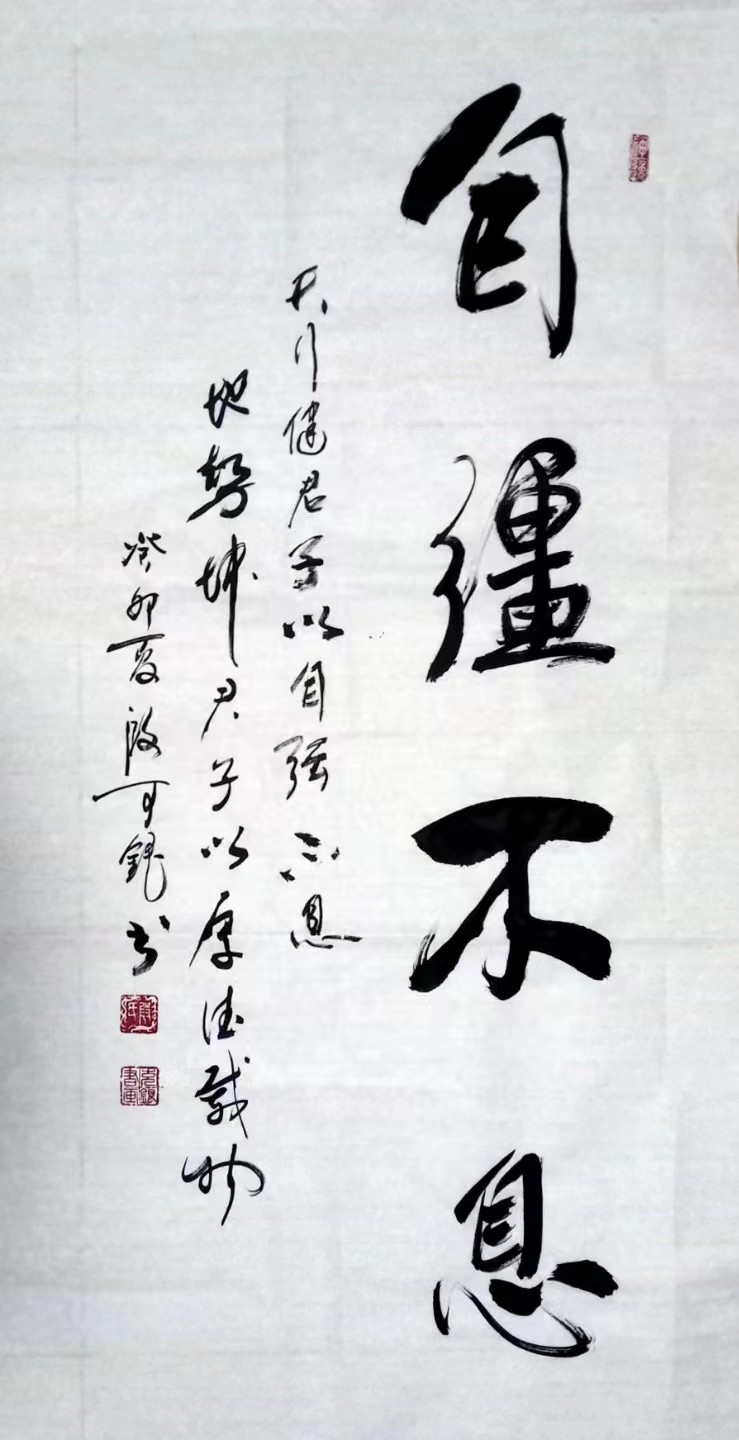 自彊不息
天行健君子以自强不息
地势坤君子以厚德载物
癸卯夏段可镜书